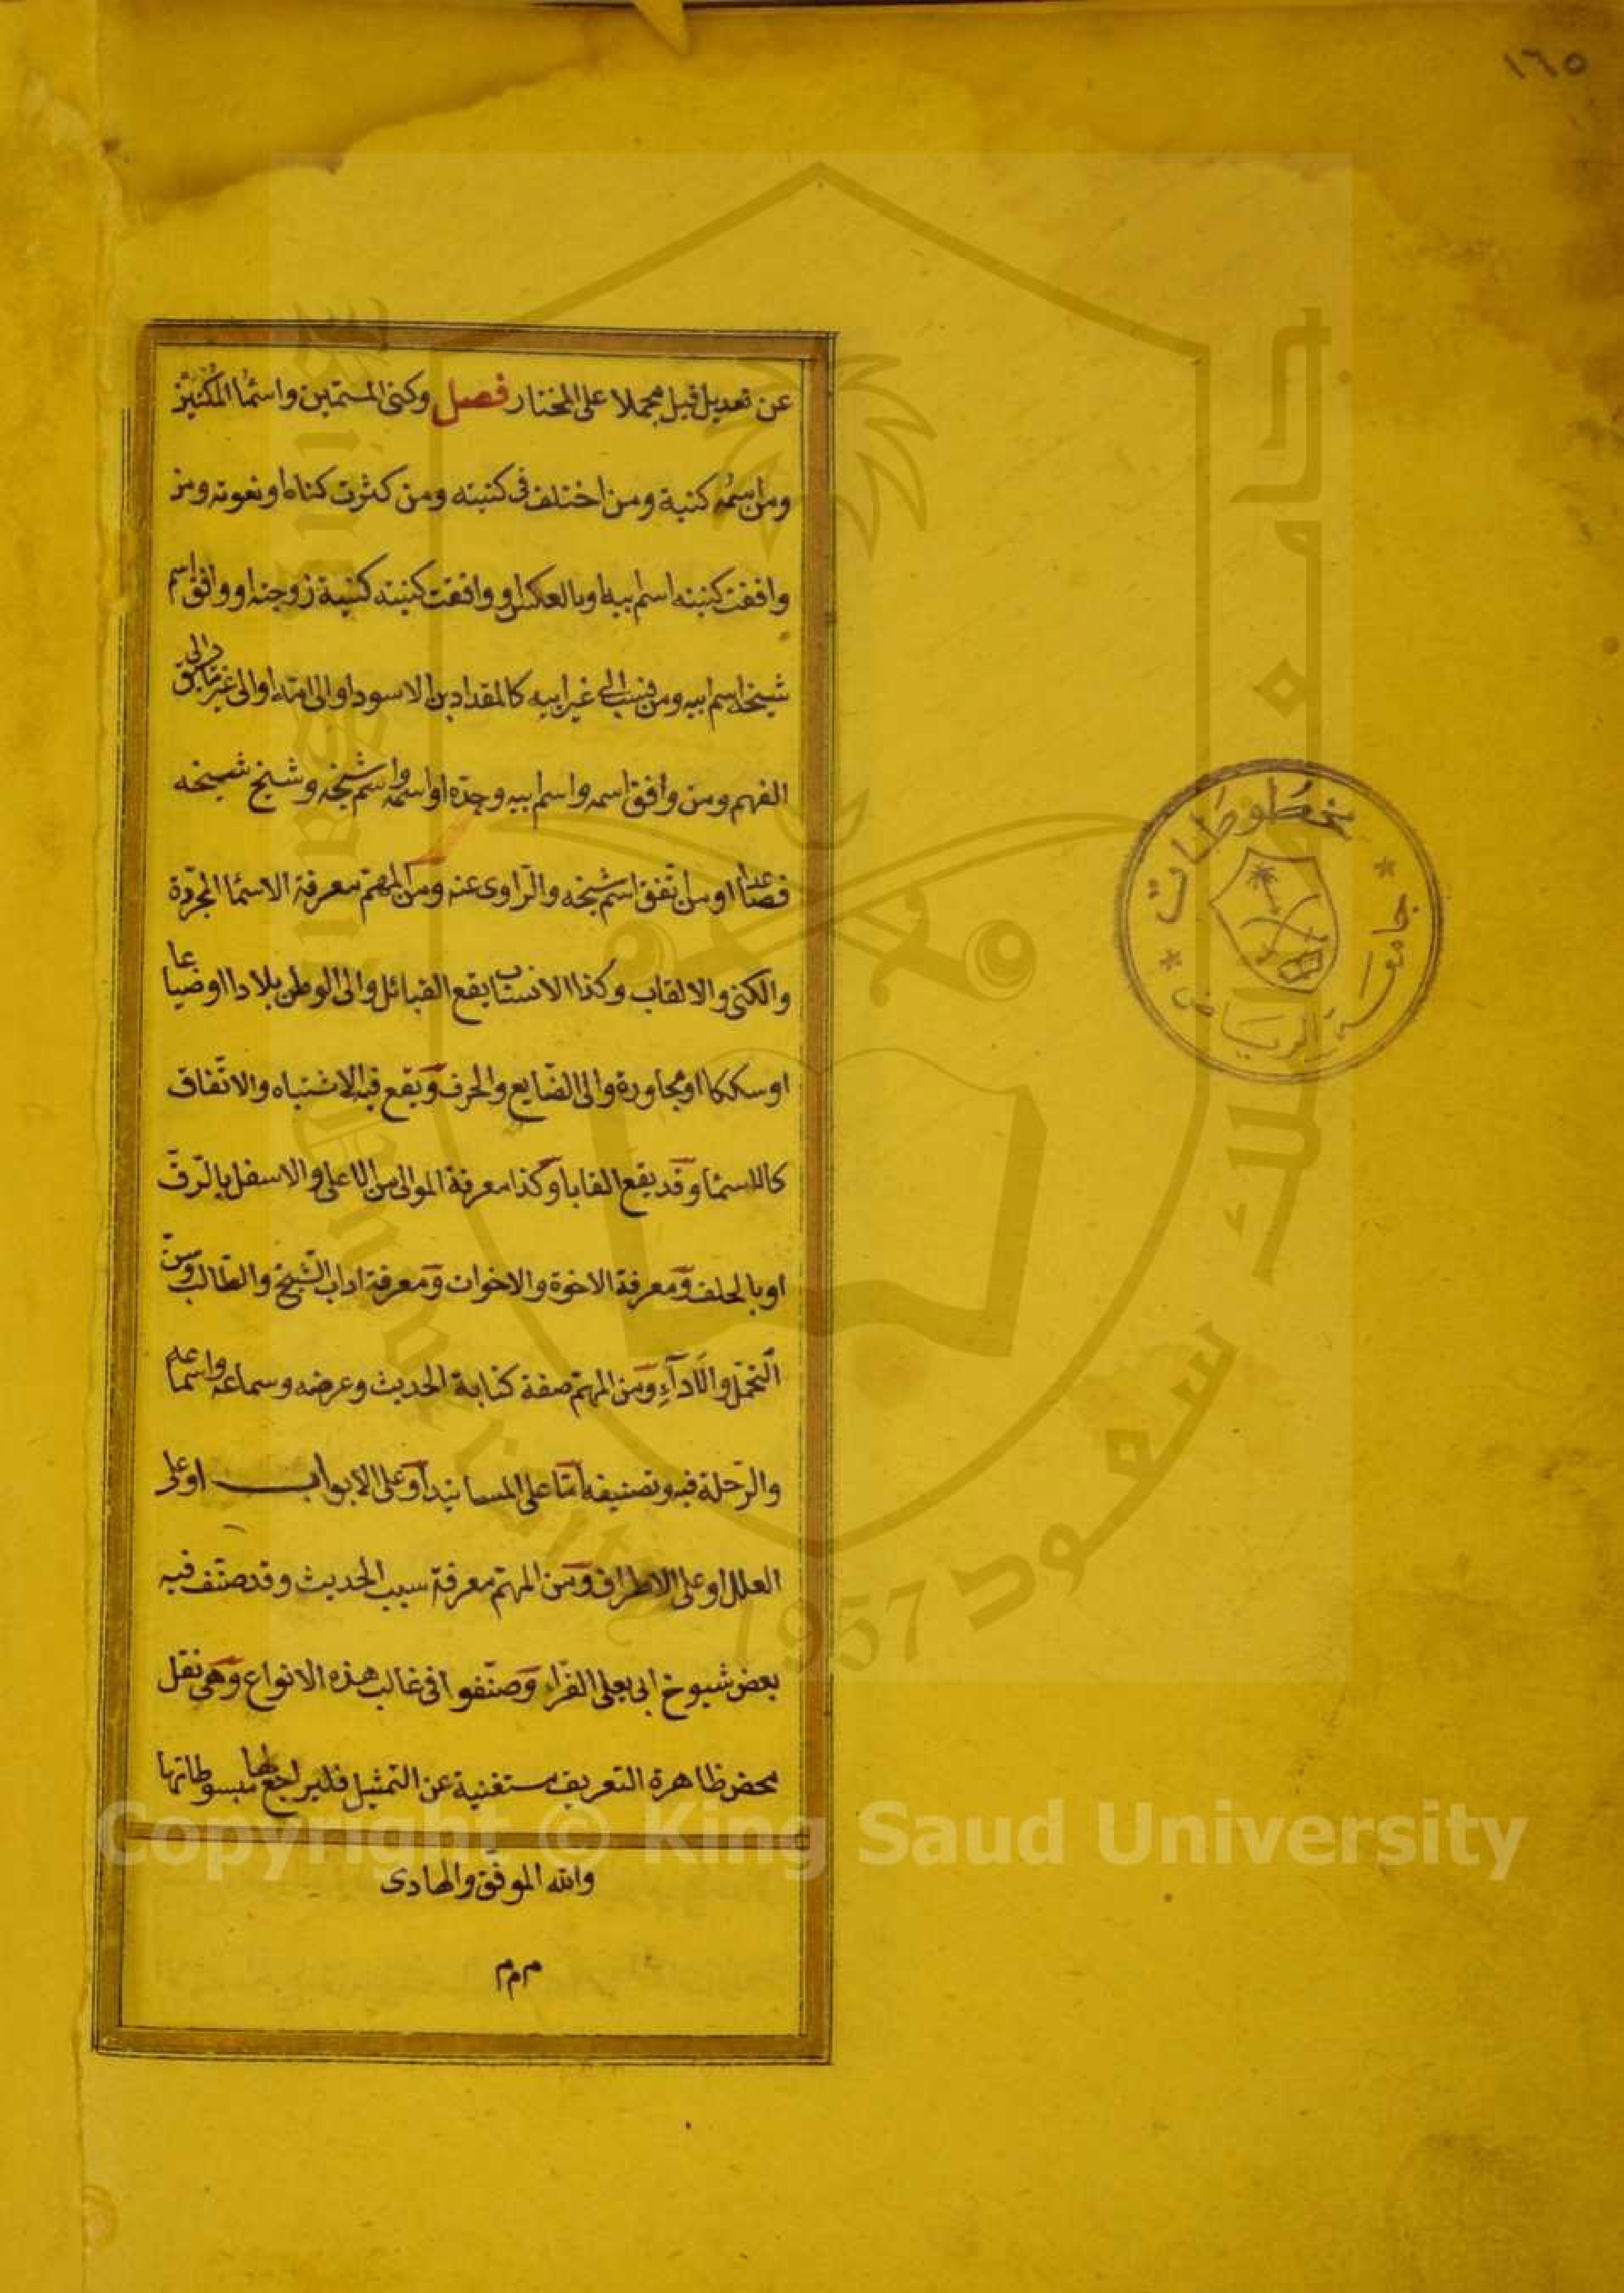 ١٦٥
عن تعديل قبل مجملا على المختار فصل وكنى المسمين واسما المكنين
ومن اسمه كنية ومن اختلف فى كنيته ومن كثرت كناه او نعوته ومن
وافقت كنيته اسم ابيه او بالعكس او وافقت كنيته كنية زوجته او وافق اسم
شيخه اسم ابيه ومن نسب الى غير ابيه كالمقداد بن الاسود او الى امه او الى غير ما يسبق الى
الفهم ومن وافق اسمه واسم ابيه وجده او اسمه واسم شيخه وشيخ شيخه
فصاعدا او من اتفق اسم شيخه والراوى عنه ومن المهم معرفة الاسما المجردة
والكنى والالقاب وكذا الانساب يقع القبائل والى الوطن بلادا او ضياعا
او سككا او مجاورة والى الصنايع والحرف ويقع فيه الاشتباه والاتفاق
كالاسما وقد يقع القابا وكذا معرفة الموالى من الاعلى والاسفل بالرق
او بالحلف ومعرفة الاخوة والاخوات ومعرفة اداب الشيخ والطالب وسن
التحمل والاداء ومن المهم صفة كتابة الحديث وعرضه وسماعه واسماعه
والرحلة فيه وتصنيفه اما على المسانيد او على الابواب او على
العلل او على الاطراف ومن المهم معرفة سبب الحديث وقد صنف فيه
بعض شيوخ ابى يعلى الفراء وصنفوا فى غالب هذه الانواع وهى نقل
محض ظاهرة التعريف مستغنية عن التمثيل فليراجع لها مبسوطاتها
والله الموفق والهادى
م م م
مخطوطات
جامعة الرياض
جامعة الملك سعود
King Saud University
1957
Copyright © King Saud University